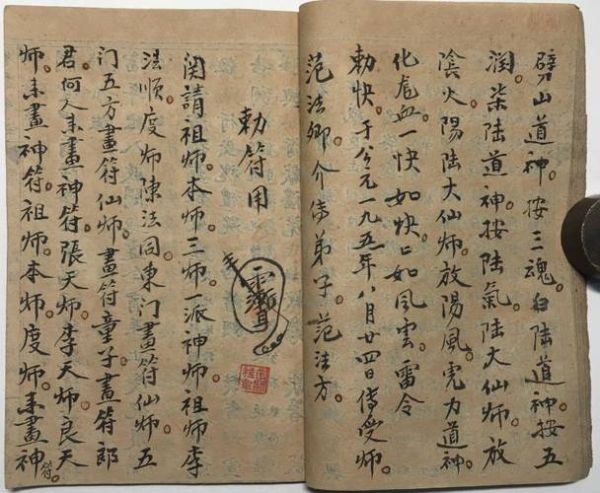 劈山道神。按三魂。白陆道神按五
润。柒陆道神按陆氣。陆大仙师。放
陰火陽陆大仙师。放陽風。力道神。
化血一快如快〻如風雲。雷令
勅快。于公元一九五年八月廿四日傳受师。
范法卿介弟子。范法方。
勅符用
請祖师。本师。三师。一派神师。祖师。李
法順。度师。陳法。東门畫符仙师。五
门五方畫符仙师。畫符童子。畫符郎
君。何人来畫神符。張天师。李天师。良天
师。来畫神符。祖师。本师。度师。来畫神符。